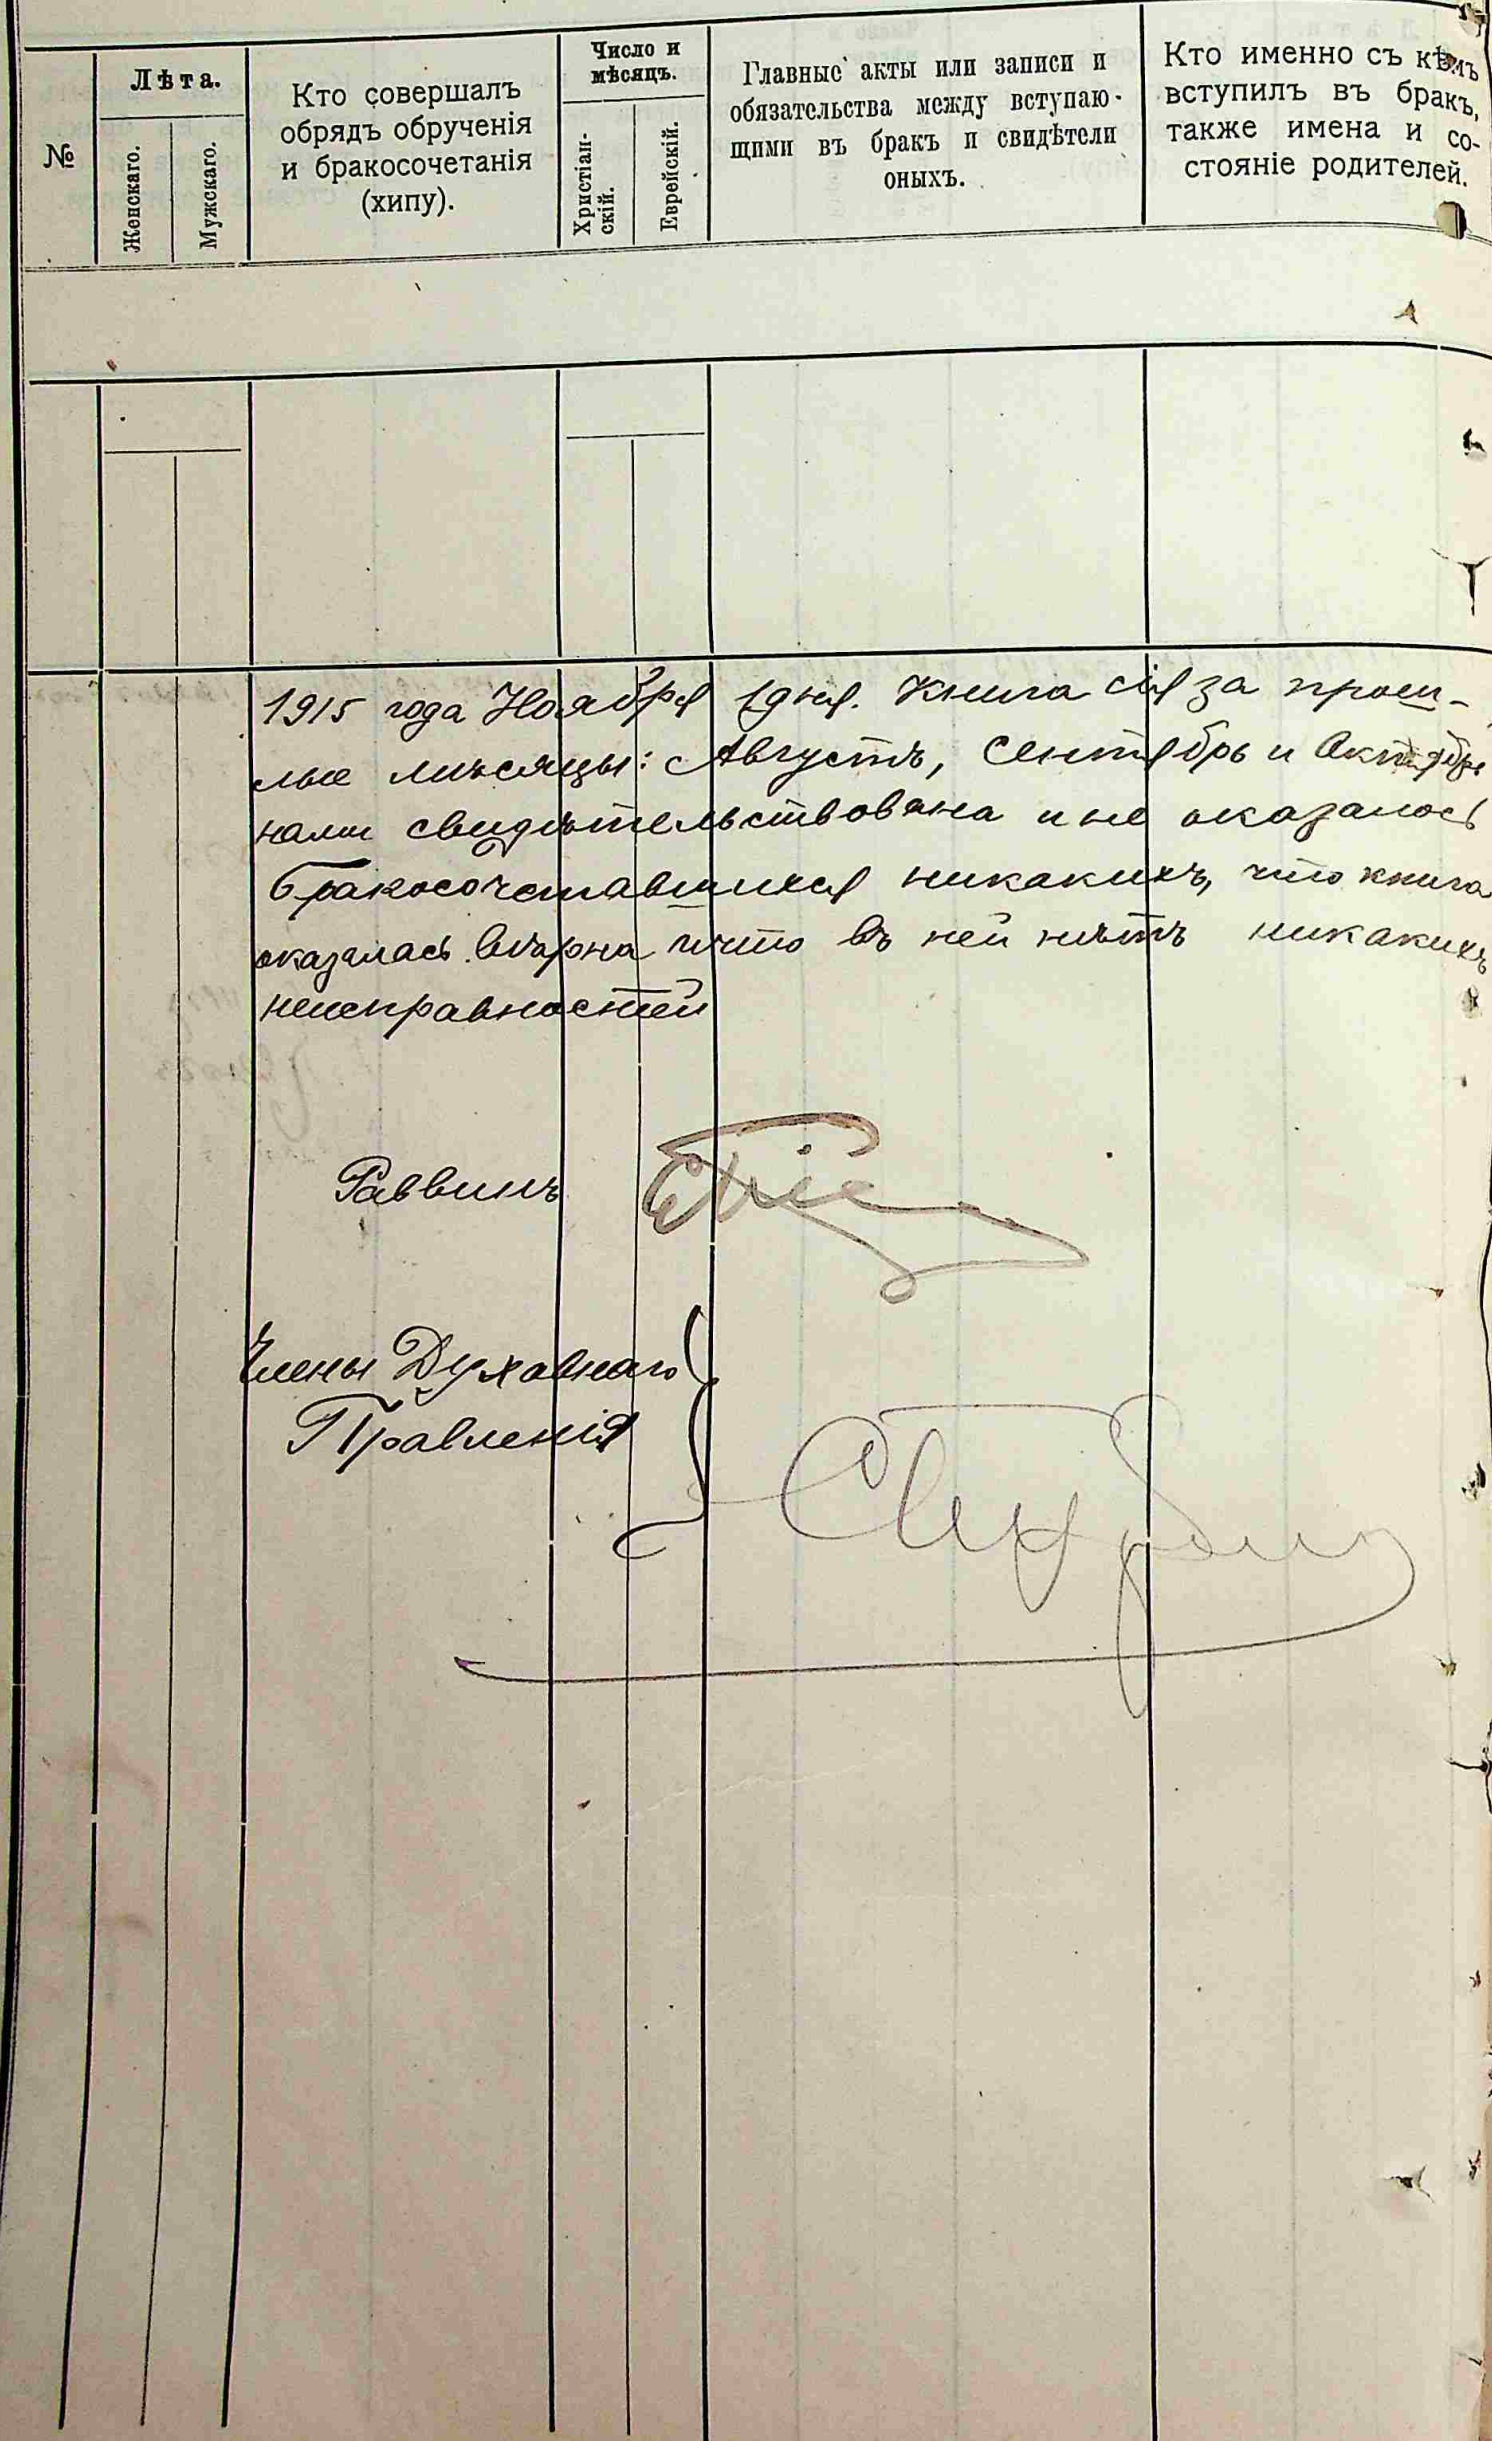 №
Лѣта.
Женскаго.
Мужскаго.
Кто совершалъ
обрядъ обрученія
и бракосочетанія
(хипу).
Число и
мѣсяцъ.
Христіан-
скій.
Еврейскій.
Главные акты или записи и
обязательства между вступаю-
щими въ бракъ и свидѣтели
оныхъ.
Кто именно съ кѣмъ
вступилъ въ бракъ,
также имена и со-
стояніе родителей.
1915 года Ноября 1 дня. Книга сія за прош-
лые мѣсяцы: Августъ, Сентябрь и Октябрь
нами свидѣтельствована и не оказалось
бракосочетавшихся никакихъ, что книга
оказалась вѣрна и что въ ней нѣтъ никакихъ
неисправностей
Раввинъ
Члены Духовнаго
Правленія